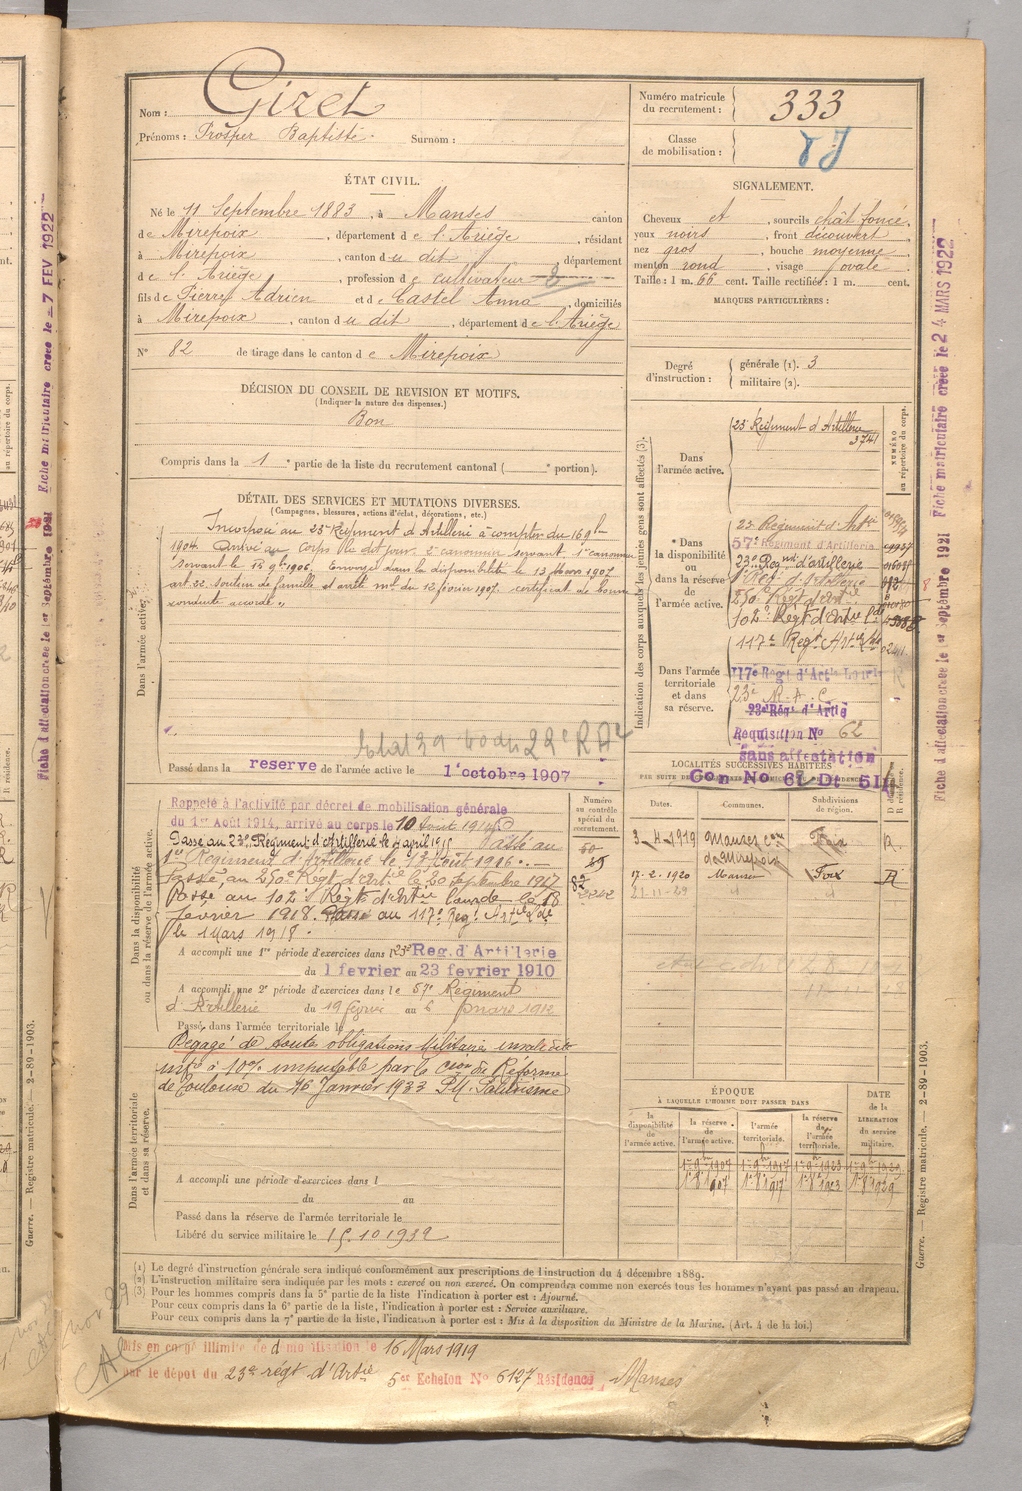 Nom : Giret
Prénoms : Prosper Baptiste Surnom :
Numéro matricule du recrutement : 333
Classe de mobilisation :
ÉTAT CIVIL.
Né le 11 Septembre 1883, à Manses canton
de Mirepoix, département de l'Ariège, résidant
à Mirepoix, canton du dit, département
de l'Ariège, profession de cultivateur
fils de Pierre Adrien et de Castel Anna, domiciliés
à Mirepoix, canton du dit, département de l'Ariège
N° 82 de tirage dans le canton de Mirepoix
SIGNALEMENT.
Cheveux et, sourcils chât foncé,
yeux noirs, front découvert
nez gros, bouche moyenne
menton rond, visage ovale
Taille : 1 m. 66 cent. Taille rectifiée : 1 m. cent.
MARQUES PARTICULIÈRES :
Degré d'instruction : générale (1). 3
militaire (2).
DÉCISION DU CONSEIL DE REVISION ET MOTIFS.
(Indiquer la nature des dispenses.)
Bon
Compris dans la 1e partie de la liste du recrutement cantonal ( e portion).
DÉTAIL DES SERVICES ET MUTATIONS DIVERSES.
(Campagnes, blessures, actions d'éclat, décorations, etc.)
Dans l'armée active.
Incorporé au 23e Régiment d'Artillerie à compter du 16 9bre
1904. Arrivé au corps le dit jour. 2e canonnier servant. 1er canonnier
servant le 9bre 1906. Envoyé dans la disponibilité le 13 Mars 1907
art. 22. soutien de famille et arrêté mel du 12 février 1907. certificat de bonne
conduite accordé.
Passé dans la reserve de l'armée active le 1er octobre 1907
Indication des corps auxquels les jeunes gens sont affectés (3).
NUMÉRO au répertoire du corps.
Dans l'armée active.
23e Régiment d'Artillerie
3741
Dans la disponibilité ou dans la réserve de l'armée active.
23e Régiment d'Artie
57e Régiment d'Artillerie
23e Regnd d'artillerie
1er Reg. d'Artillerie
250e Régt d'Artie
102e Régt d'Artie Lde
117e Régt Artie Lde
Dans l'armée territoriale et dans sa réserve.
117e Régt d'Artie Lourde
23e R.A.C.
23e Régt d'Artie
Requisition N° 62
sans affectation
LOCALITÉS SUCCESSIVES HABITÉES
Dates. Communes. Subdivisions de région. D domicile R résidence.
3-4-1919 Manses con de Mirepoix Foix R.
17-2-1920 Manses Foix R
21-11-29
Dans la disponibilité ou dans la réserve de l'armée active.
Numéro au contrôle spécial du recrutement.
Rappelé à l'activité par décret de mobilisation générale
du 1er Août 1914, arrivé au corps le 10 Août 1914
Passé au 23e Régiment d'Artillerie le 4 april 1915 Passé au
1er Régiment d'Artillerie le 17 Août 1916.
Passé au 250e Régt d'Artie le 20 Septembre 1917
Passé au 102e Régt d'Artie lourde le 18
février 1918. Passé au 117e Régt Artie Lde
le 1 Mars 1918.
A accompli une 1re période d'exercices dans l 23e Reg. d'Artillerie
du 1 fevrier au 23 fevrier 1910
A accompli une 2e période d'exercices dans le 57e Régiment
d'Artillerie du 19 février au 6 mars 1912
Passé dans l'armée territoriale le
Dégagé de toute obligations Militaire invalidité
infre à 10% imputable par la Con de Réforme
de Toulouse du 16 Janvier 1933 Paludisme
Dans l'armée territoriale et dans sa réserve.
A accompli une période d'exercices dans l
du au
Passé dans la réserve de l'armée territoriale le
Libéré du service militaire le 15.10 1932
ÉPOQUE
À LAQUELLE L'HOMME DOIT PASSER DANS
la disponibilité de l'armée active. la réserve de l'armée active. l'armée territoriale. la réserve de l'armée territoriale.
DATE de la LIBÉRATION du service militaire.
1er 9bre 1907 1er 9bre 1917 1er 9bre 1923 1er 9bre 1929
1er 8bre 1907 1er 8bre 1917 1er 8bre 1923 1er 8bre 1929
(1) Le degré d'instruction générale sera indiqué conformément aux prescriptions de l'instruction du 4 décembre 1889.
(2) L'instruction militaire sera indiquée par les mots : exercé ou non exercé. On comprendra comme non exercés tous les hommes n'ayant pas passé au drapeau.
(3) Pour les hommes compris dans la 5e partie de la liste l'indication à porter est : Ajourné.
Pour ceux compris dans la 6e partie de la liste, l'indication à porter est : Service auxiliaire.
Pour ceux compris dans la 7e partie de la liste, l'indication à porter est : Mis à la disposition du Ministre de la Marine. (Art. 4 de la loi.)
Mis en congé illimité de démobilisation le 16 Mars 1919
par le dépôt du 23e régt d'Artie 5er Echelon N° 6127 Résidence Manses
Guerre. — Registre matricule. — 2-89-1903.
Fiche matriculaire créée le 24 MARS 1922
Fiche d'affectation créée le 1er Septembre 1921
Guerre. — Registre matricule. — 2-89-1903.
Fiche matriculaire créée le - 7 FEV 1922
Fiche d'affectation créée le 1er Septembre 1921